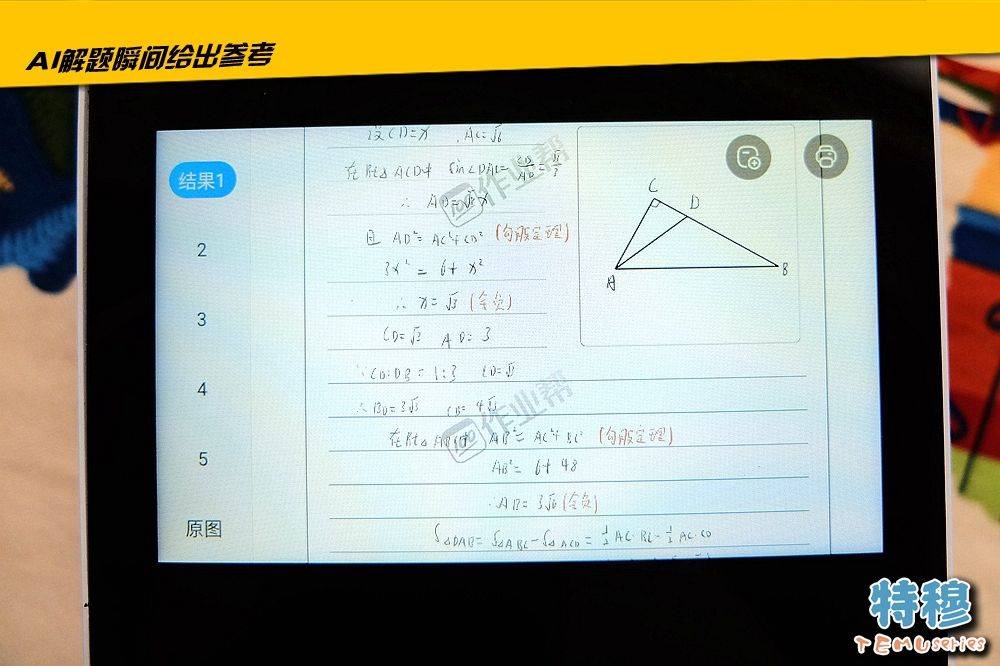 AI解题瞬间给出参考
结果1
2
3
4
5
原图
设CD=x ,AC=√6
在Rt△ACD中 sin∠DAC=CD/AD=√3/3
∴ AD=√3x
且 AD²=AC²+CD² (勾股定理)
3x²=6+x²
∴ x=√3 (舍负)
CD=√3 AD=3
∵CD:DB=1:3 CD=√3
∴BD=3√3 CB=4√3
在Rt△ABC中 AB²=AC²+BC² (勾股定理)
AB²=6+48
∴AB=3√6(舍负)
S△DAB=S△ABC-S△ACD=1/2AC·BC-1/2AC·CD
C
D
A
B
作业帮
作业帮
特穆
TEMUseries